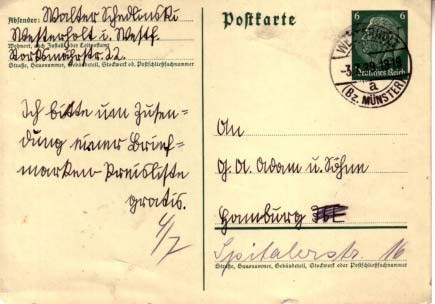 Absender: Walter Schedlinski
Westerholt i. Westf.
Wohnort, auch Zustell- oder Leitpostamt
Storksmährstr. 22.
Straße, Hausnummer, Gebäudeteil, Stockwerk od. Postschließfachnummer
Ich bitte um Zusen-
dung einer Brief-
marken-Preisliste
gratis.
4/7
Postkarte
6 6
Deutsches Reich
a
(Bz. MÜNSTER)
An
G. A. Adam u. Söhn
Hamburg
Spitalerstr. 16
Straße, Hausnummer, Gebäudeteil, Stockwerk oder Postschließfachnummer